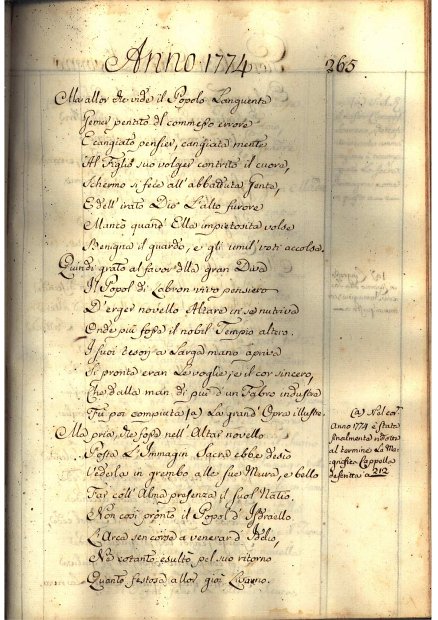 Anno 1774
265
Ma allor che vide il Popolo Languente
Gemer pentito del commesso errore
E cangiato pensier, cangiata mente
Al Figlio suo volger contrito il cuore,
Schermo si fece all' abbattuta Gente,
E dell' irato Dio l'alto furore
Mancò quand' Ella impietosita volse
Benigna il guardo, e gli umil' voti accolse.
Quindi grato al favor della gran Diva
Il Popol di Labron vivo pensiero
D' erger novello Altare in se nutriva
Onde più fosse il nobil Tempio altero.
I suoi tesori a larga mano apriva
Sì pronta eran Le voglie, e il cor sincero,
Che dalla man di più d'un Fabro industre
Fu poi compiuta (a) La grand' Opra illustre.
Ma pria, che fosse nell' Altar novello
Posta L'Immagin Sacra ebbe desio
Vederla in grembo alle sue Mura, e bello
Far coll' Alma presenza il suol Natio.
Non così pronto il Popol d' Isdraello
L'Arca sen corse a venerar d' Iddio,
Nè cotanto esultò pel suo ritorno
Quanto festosa allor gioì Livorno.
(a) Nel cor.te
Anno 1774 è stata
finalmente ridotta
al termine La Ma-
gnifica Cappella
descritta a 212